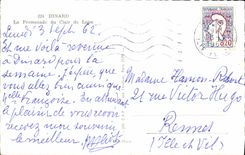 221 DINARD
La Promenade du Clair de Lune
Lundi 3 Sept 62
Et me voilà revenue
à Dinard pour la
semaine. J'espère que
vous allez bien que
Françoise. En attendant
le plaisir de vous revoir
recevez mon souvenir
le meilleur,
Madame Hamon-Robert
21 rue Victor Hugo
Rennes
(Ille et Vil)
0,20